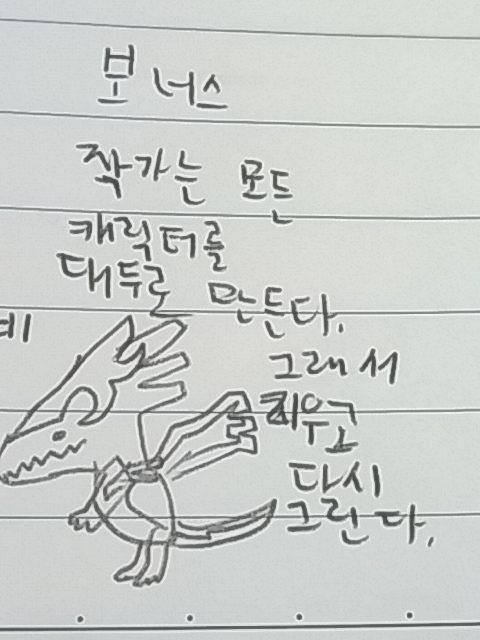 보너스
작가는 모든
캐릭터를
대두로 만든다.
그래서
지우고
다시
그린다.